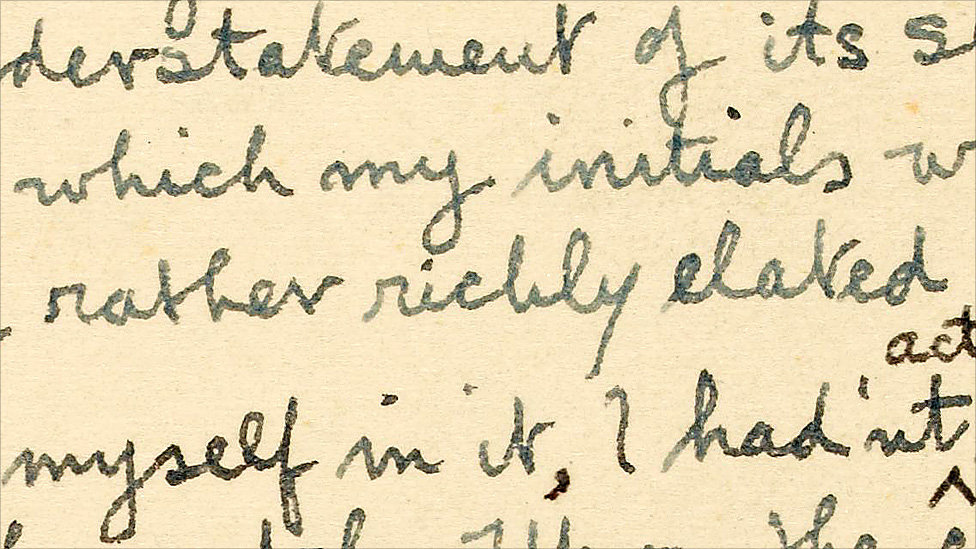 derstatement of its s
which my initials w
rather richly elated
act
myself in it, I had'nt